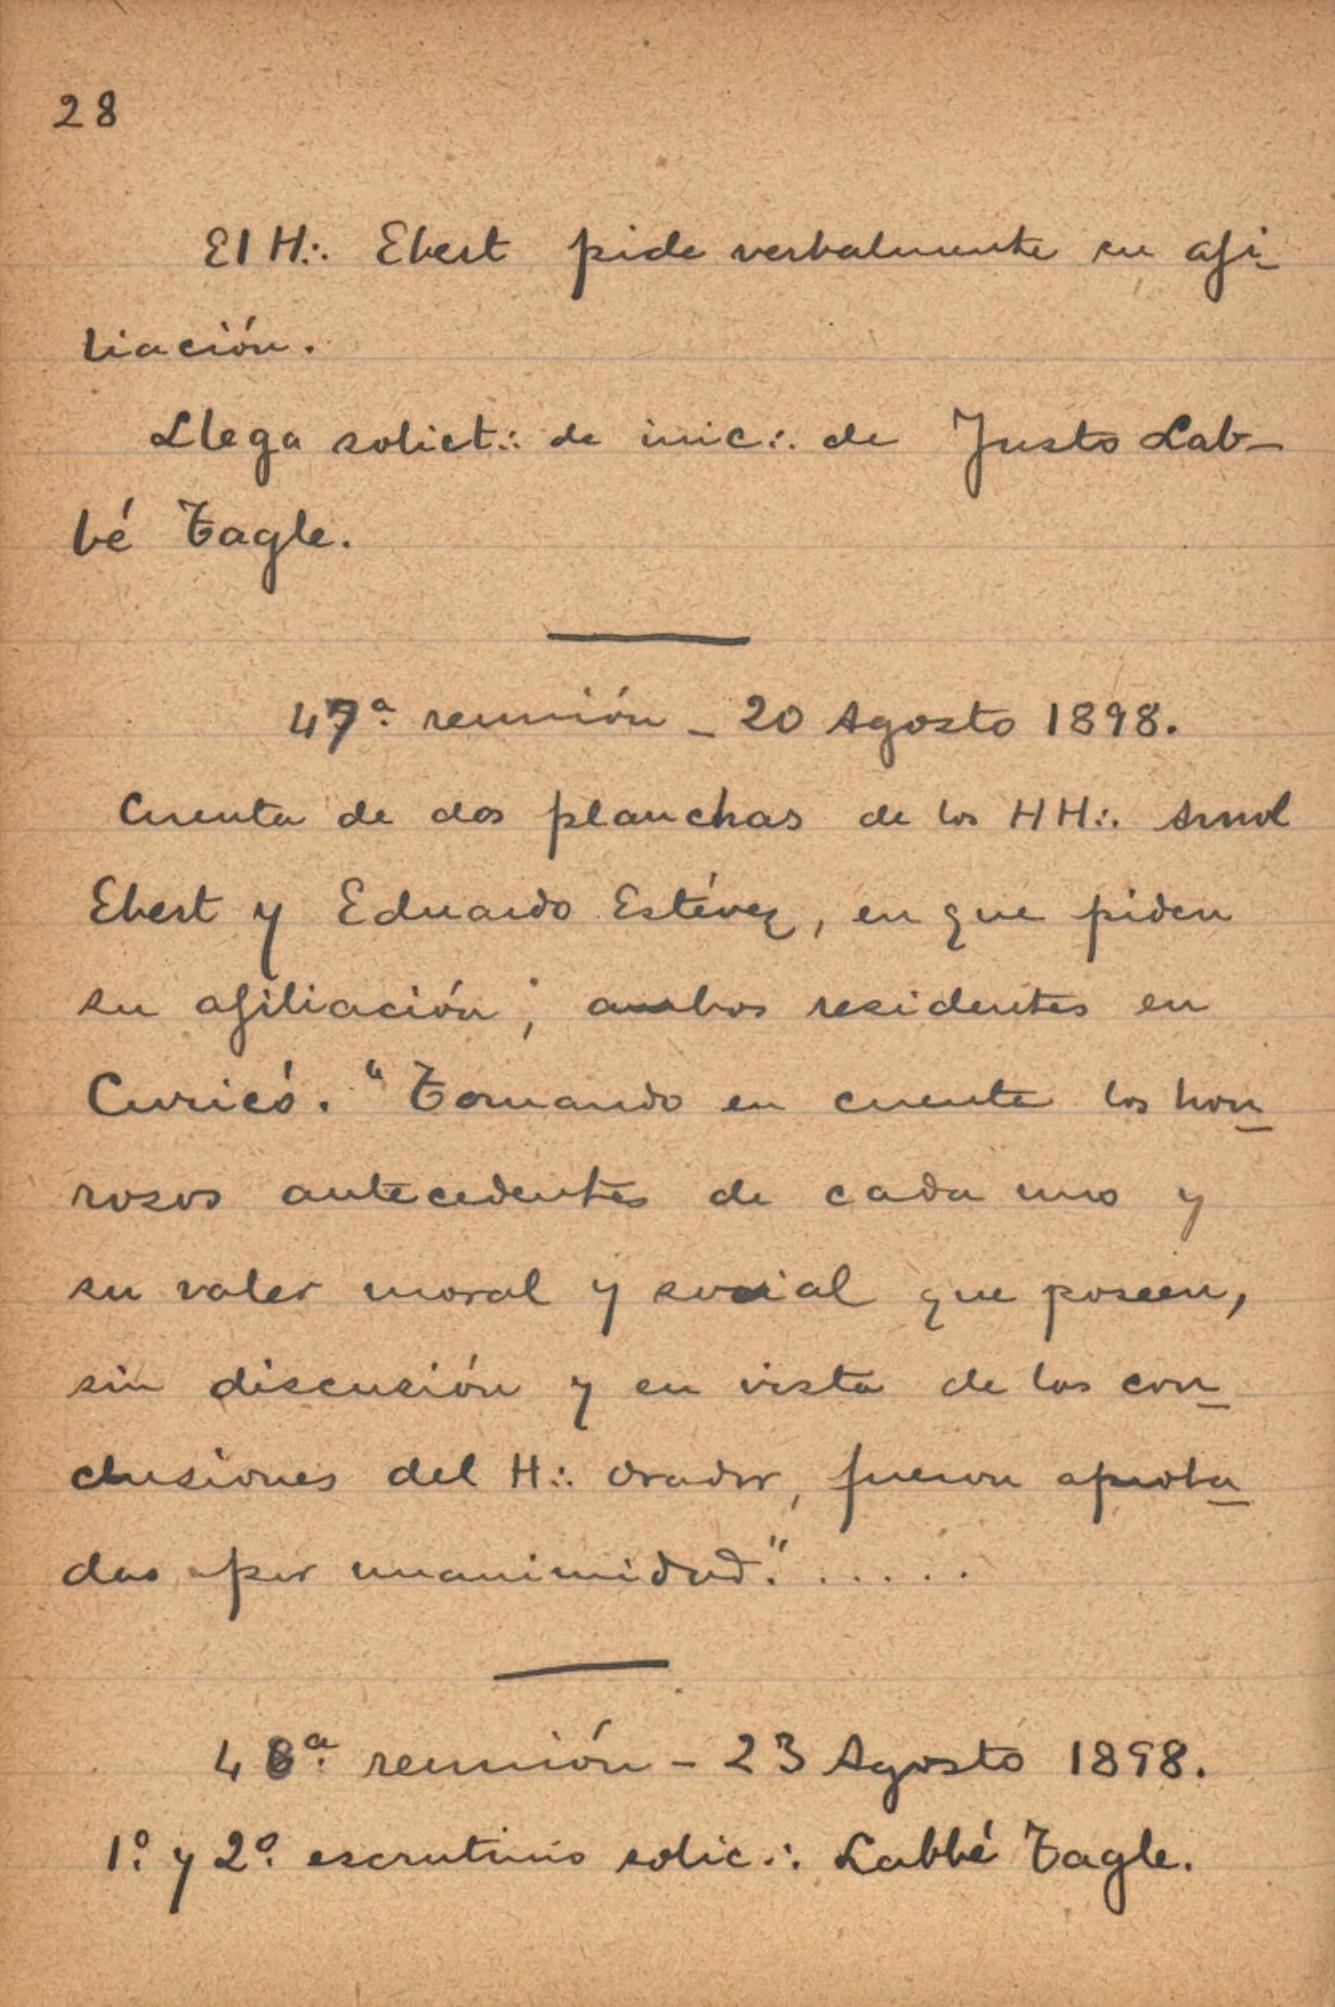 28
El H∴ Ebert pide verbalmente su afi-
liación.
Llega solict∴ de inic∴ de Justo Lab-
bé Tagle.
47ª reunión - 20 Agosto 1898.
Cuenta de dos planchas de los HH∴ Arnol
Ebert y Eduardo Estévez, en que piden
su afiliación; ambos residentes en
Curicó. "Tomando en cuenta los hon-
rosos antecedentes de cada uno y
su valer moral y social que poseen,
sin discusión y en vista de las con-
clusiones del H∴ Orador, fueron aproba-
das por unanimidad." . . . . .
48ª reunión - 23 Agosto 1898.
1º y 2º escrutinio solic∴ Labbé Tagle.